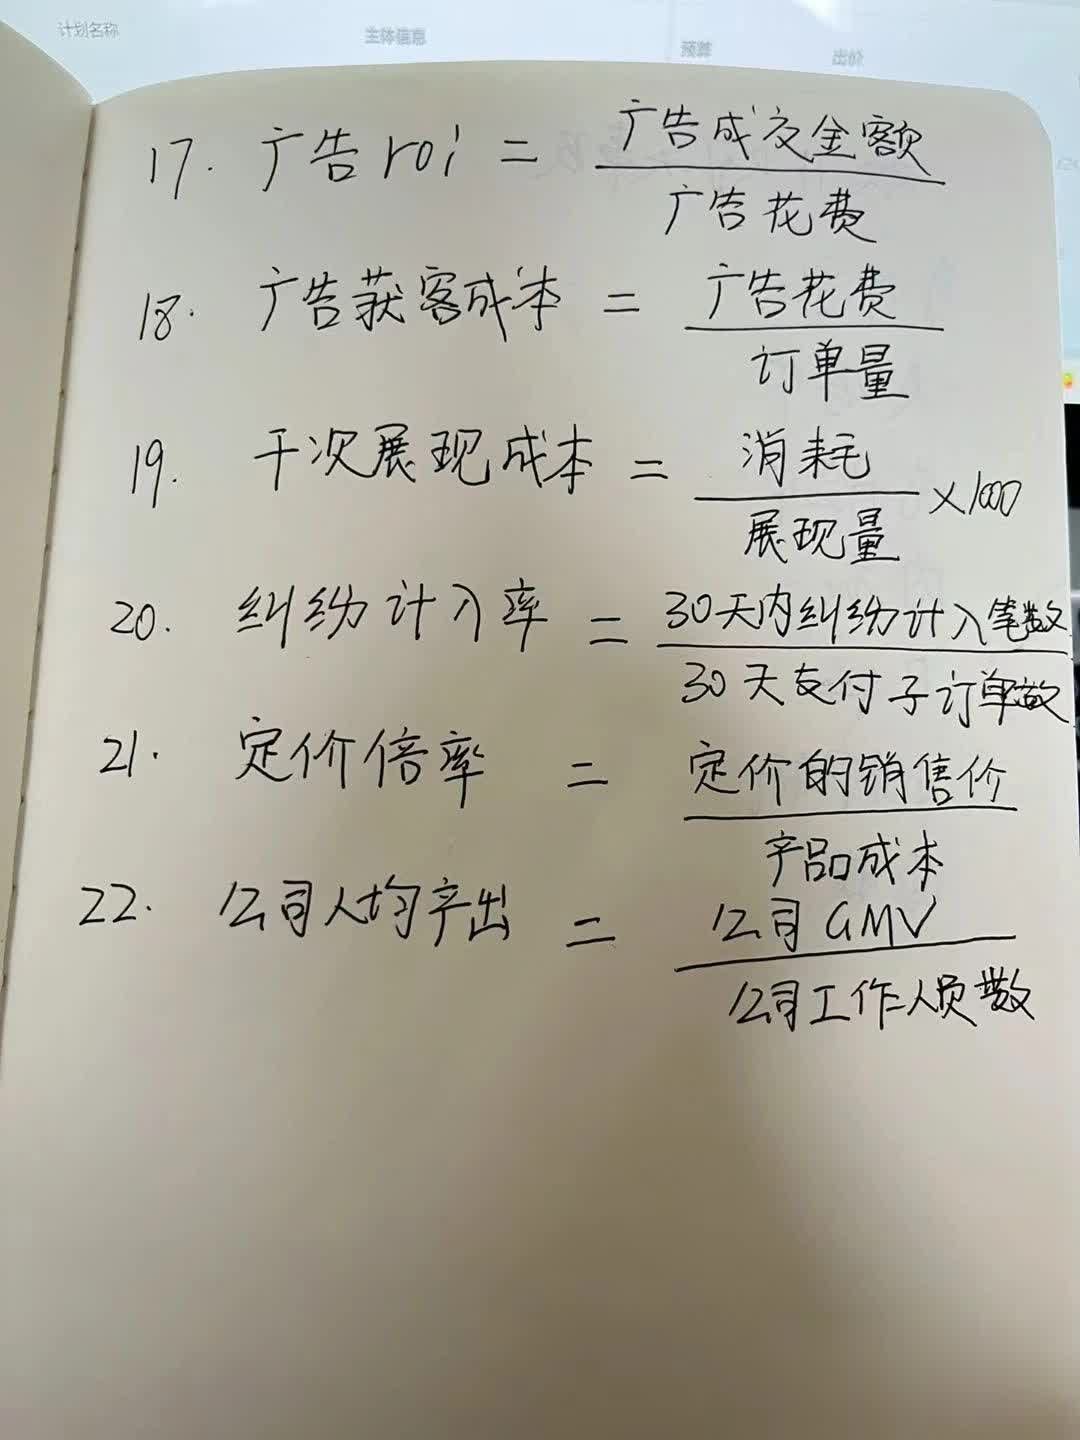 计划名称
主体信息
预算
出价
17. 广告roi = 广告成交金额
广告花费
18. 广告获客成本 = 广告花费
订单量
19. 千次展现成本 = 消耗
展现量 ×1000
20. 纠纷计入率 = 30天内纠纷计入笔数
30天支付子订单数
21. 定价倍率 = 定价的销售价
产品成本
22. 公司人均产出 = 公司GMV
公司工作人员数